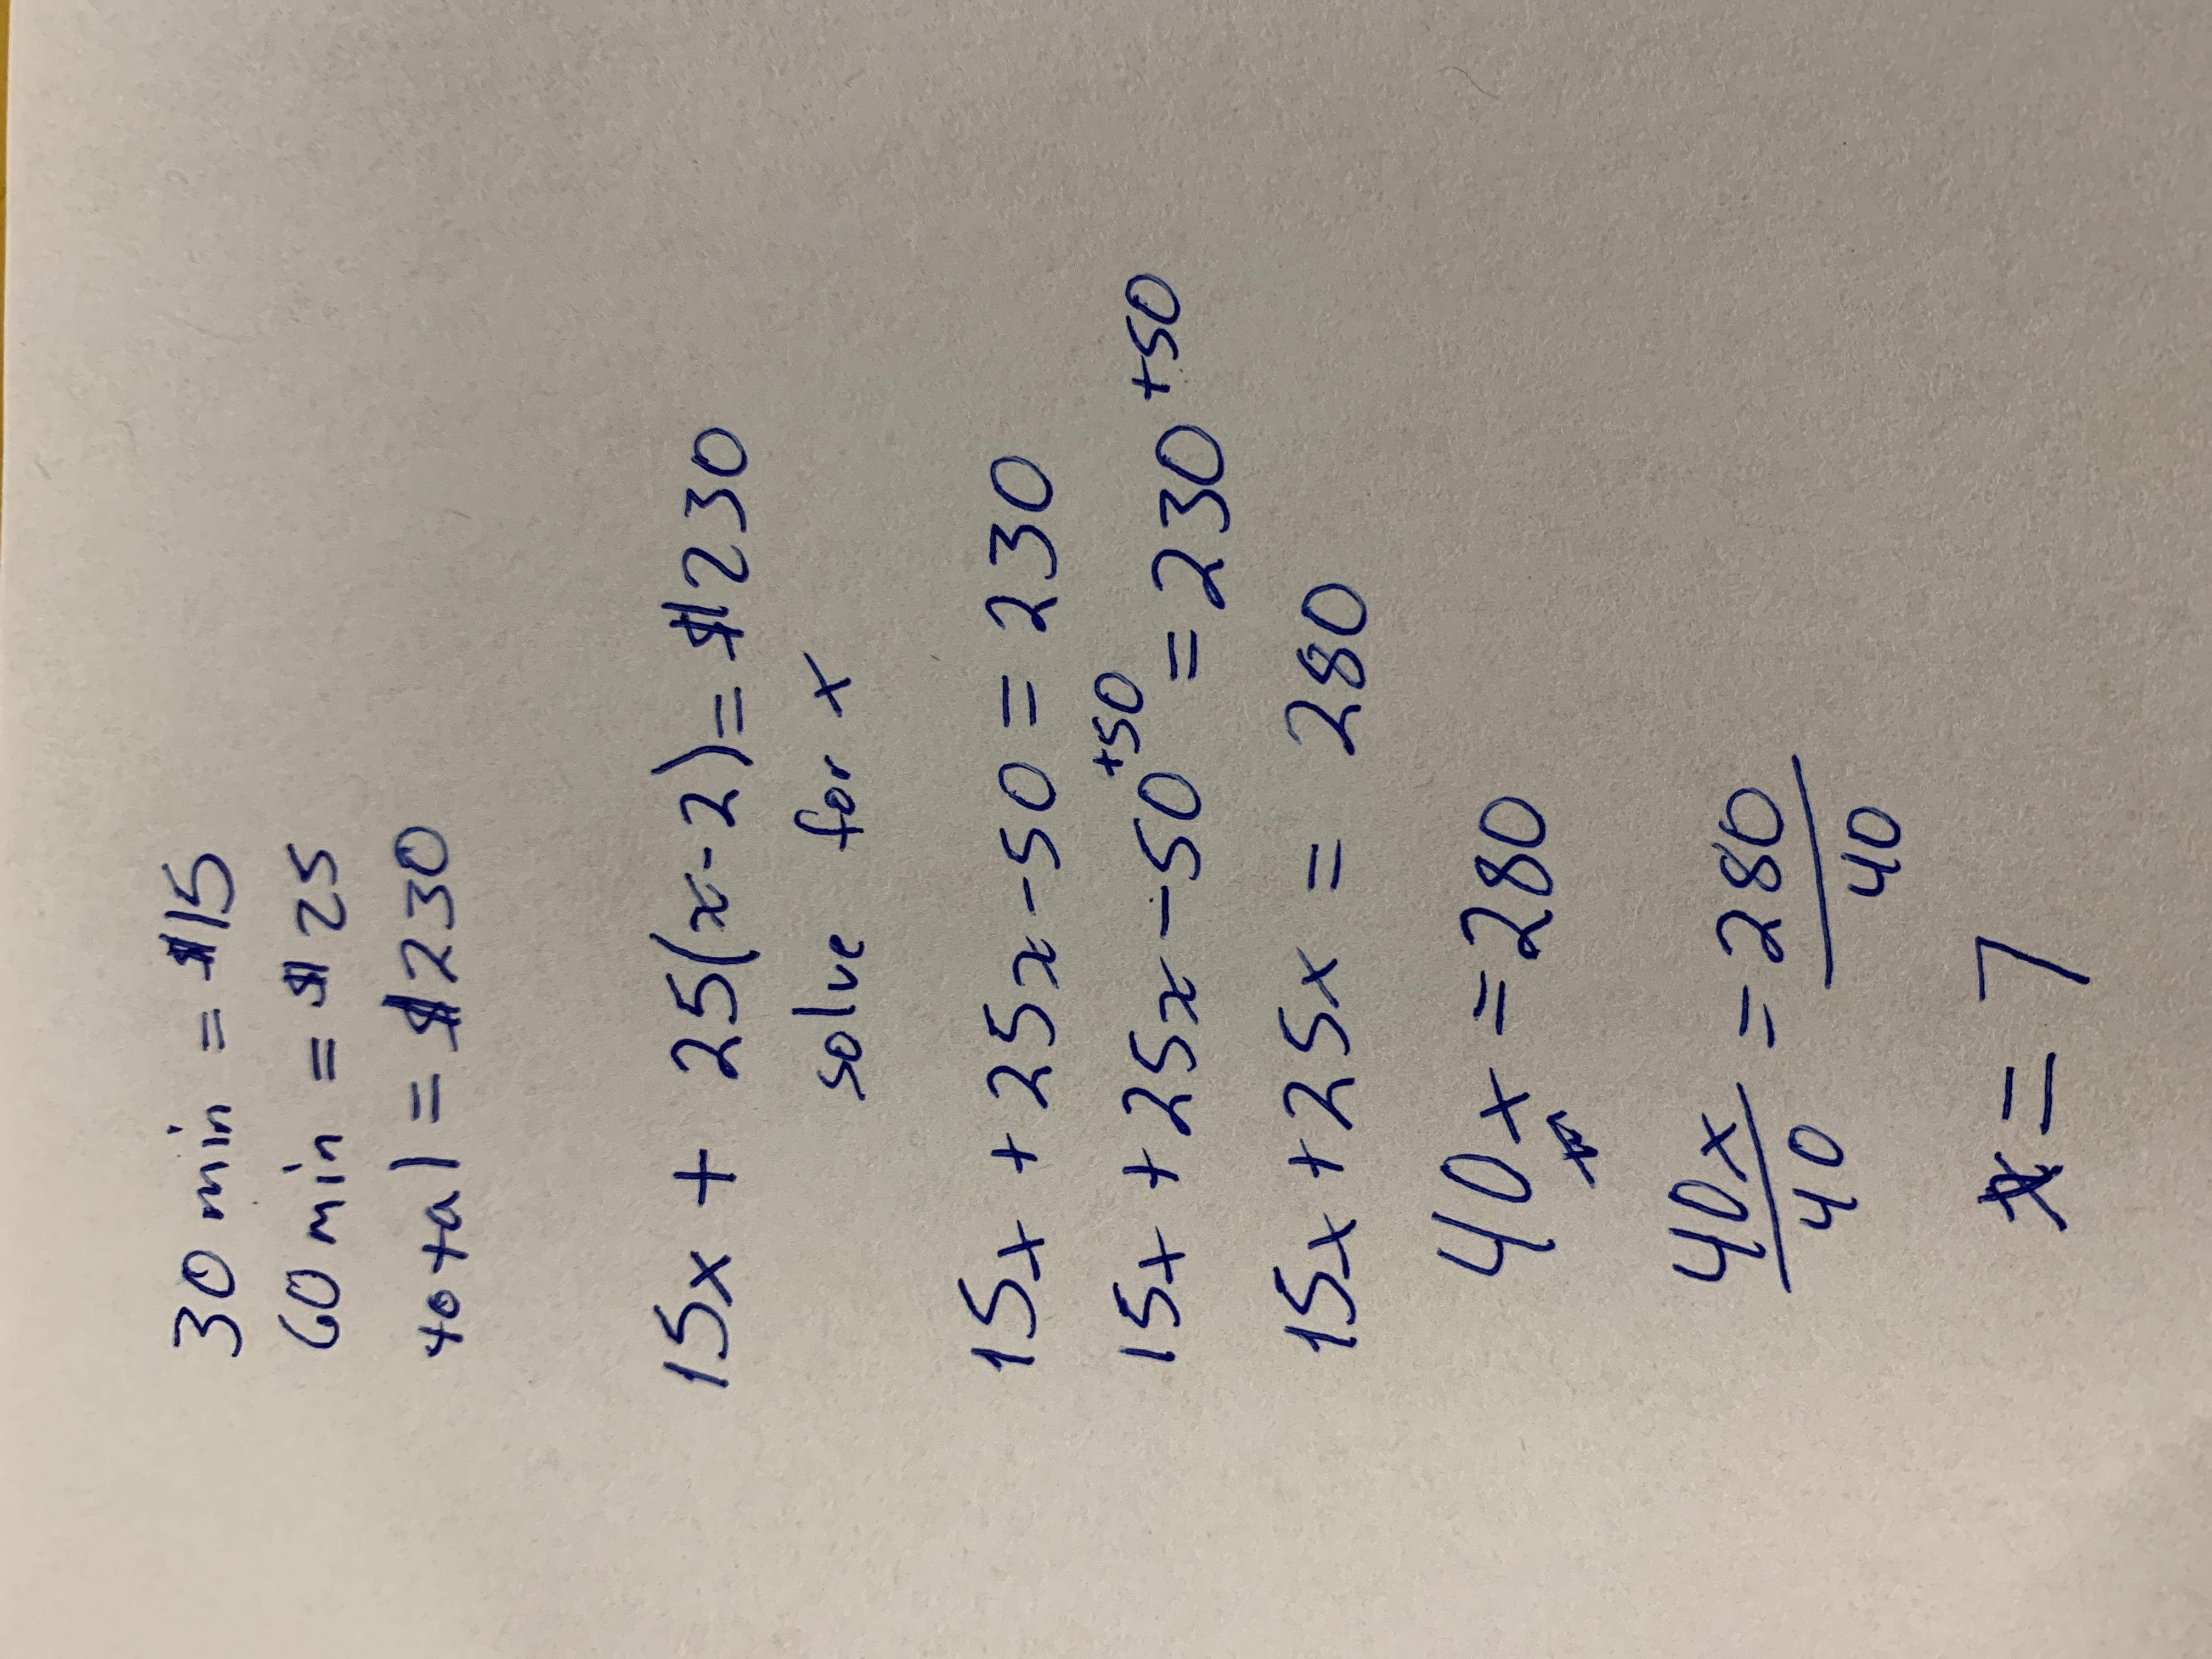 30 min = $15
60 min = $25
total = $230
15x + 25(x-2) = $230
solve for x
15x + 25x - 50 = 230
15x + 25x - 50 +50 = 230 +50
15x + 25x = 280
40x = 280
40x/40 = 280/40
x = 7